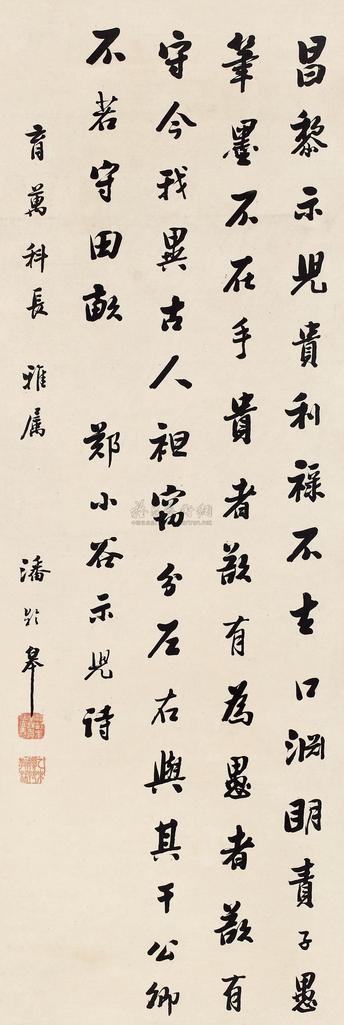 昌黎示兒貴利祿不去口淵明責子愚
筆墨不在手貴者欲有為愚者欲有
守今我異古人袒竊分左右與其干公卿
不若守田畝 鄭小谷示兒詩
育萬科長 雅属 潘齡皋